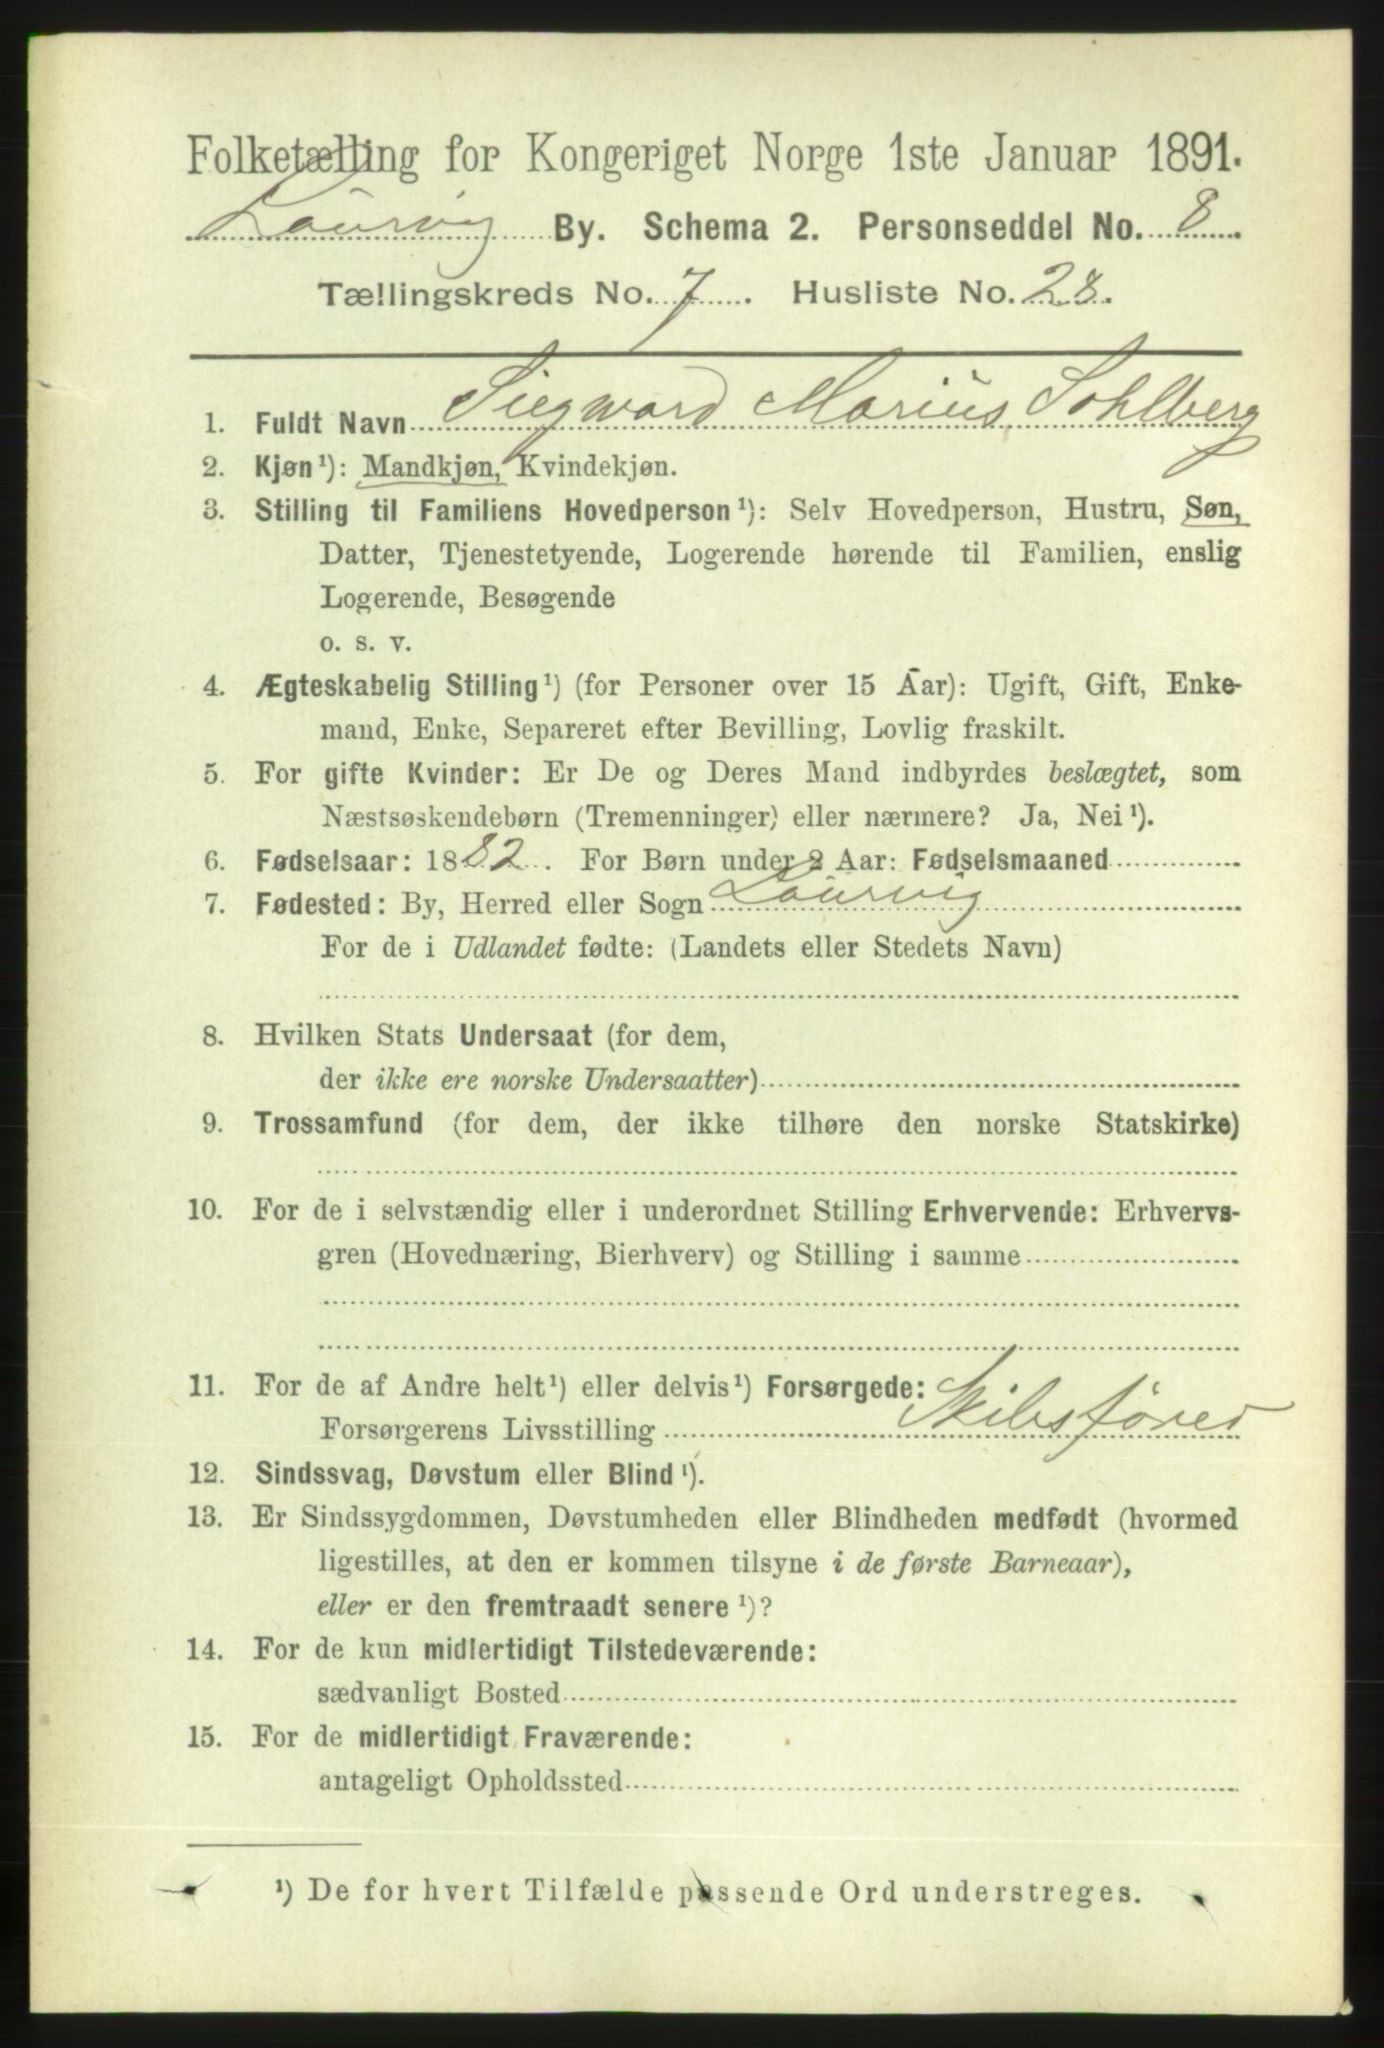 Folketælling for Kongeriget Norge 1ste Januar 1891.
Laurvig By. Schema 2. Personseddel No. 8
Tællingskreds No. 7. Husliste No. 28.
1. Fuldt Navn Siegward Marius Sohlberg
2. Kjøn¹): Mandkjøn, Kvindekjøn.
3. Stilling til Familiens Hovedperson¹): Selv Hovedperson, Hustru, Søn,
Datter, Tjenestetyende, Logerende hørende til Familien, enslig
Logerende, Besøgende
o. s. v.
4. Ægteskabelig Stilling¹) (for Personer over 15 Aar): Ugift, Gift, Enke-
mand, Enke, Separeret efter Bevilling, Lovlig fraskilt.
5. For gifte Kvinder: Er De og Deres Mand indbyrdes beslægtet, som
Næstsøskendebørn (Tremenninger) eller nærmere? Ja, Nei¹).
6. Fødselsaar: 1882. For Børn under 2 Aar: Fødselsmaaned
7. Fødested: By, Herred eller Sogn Laurvig
For de i Udlandet fødte: (Landets eller Stedets Navn)
8. Hvilken Stats Undersaat (for dem,
der ikke ere norske Undersaatter)
9. Trossamfund (for dem, der ikke tilhøre den norske Statskirke)
10. For de i selvstændig eller i underordnet Stilling Erhvervende: Erhvervs-
gren (Hovednæring, Bierhverv) og Stilling i samme
11. For de af Andre helt¹) eller delvis¹) Forsørgede:
Forsørgerens Livsstilling Skibsfører
12. Sindssvag, Døvstum eller Blind¹).
13. Er Sindssygdommen, Døvstumheden eller Blindheden medfødt (hvormed
ligestilles, at den er kommen tilsyne i de første Barneaar),
eller er den fremtraadt senere¹)?
14. For de kun midlertidigt Tilstedeværende:
sædvanligt Bosted
15. For de midlertidigt Fraværende:
antageligt Opholdssted
¹) De for hvert Tilfælde passende Ord understreges.